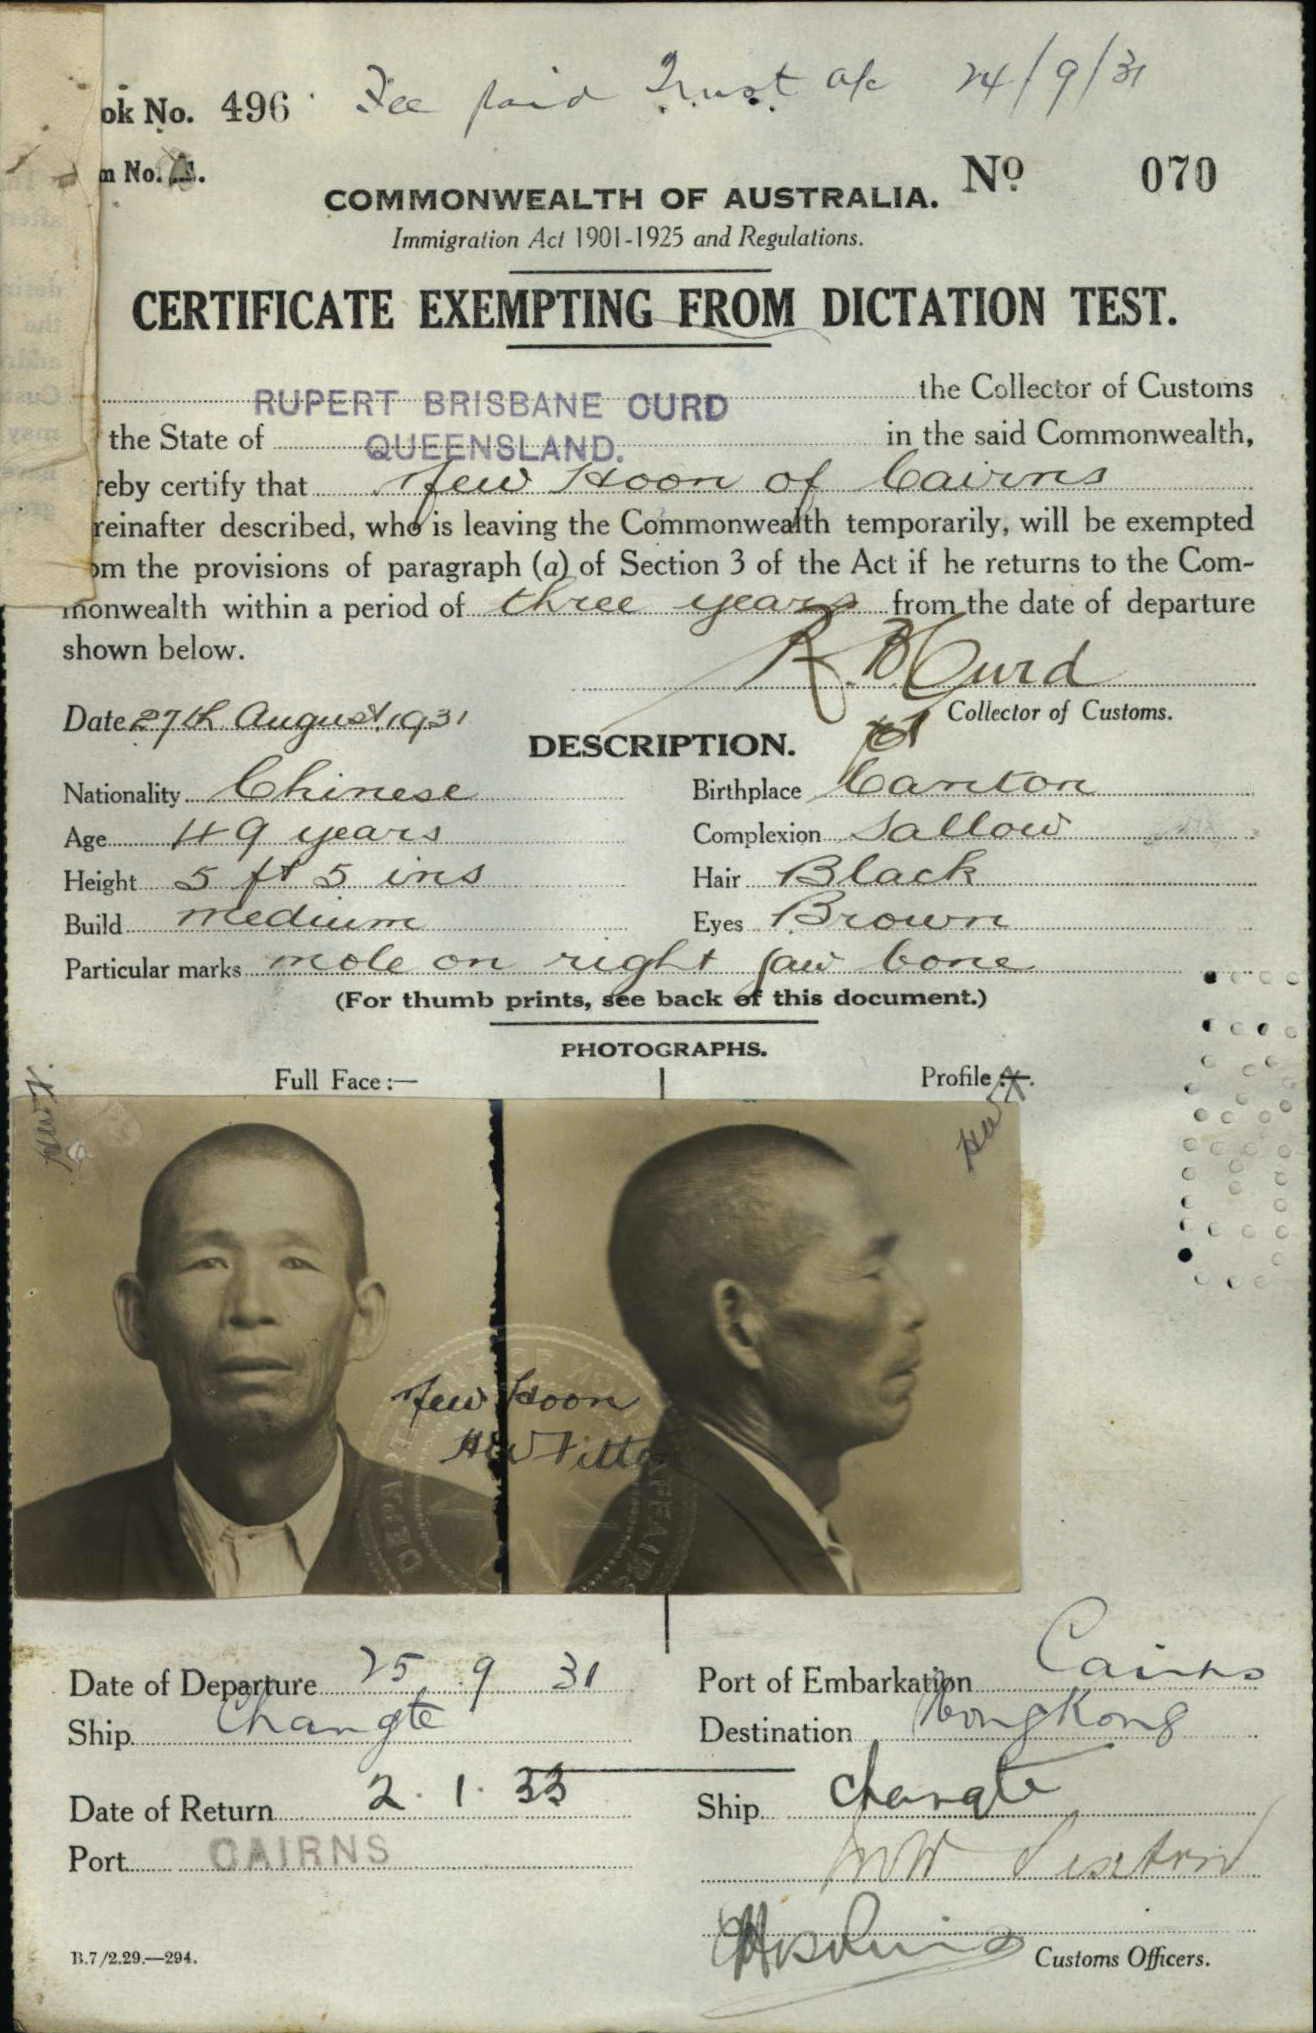 ok No. 496 Fee paid Trust a/c 24/9/31
m No.
Nº 070
COMMONWEALTH OF AUSTRALIA.
Immigration Act 1901-1925 and Regulations.
CERTIFICATE EXEMPTING FROM DICTATION TEST.
RUPERT BRISBANE CURD the Collector of Customs
the State of QUEENSLAND. in the said Commonwealth,
reby certify that Yew Hoon of Cairns
reinafter described, who is leaving the Commonwealth temporarily, will be exempted
om the provisions of paragraph (a) of Section 3 of the Act if he returns to the Com-
monwealth within a period of three years from the date of departure
shown below.
R.B. Curd
Date 27th August 1931 Collector of Customs.
DESCRIPTION.
Nationality Chinese Birthplace Canton
Age 49 years Complexion Sallow
Height 5 ft 5 ins Hair Black
Build medium Eyes Brown
Particular marks mole on right jaw bone
(For thumb prints, see back of this document.)
PHOTOGRAPHS.
Full Face:— Profile:—
Yew Hoon
Date of Departure 25 9 31 Port of Embarkation Cairns
Ship Changte Destination Hongkong
Date of Return 2. 1. 33 Ship Changte
Port CAIRNS
B.7/2.29.—294. Customs Officers.